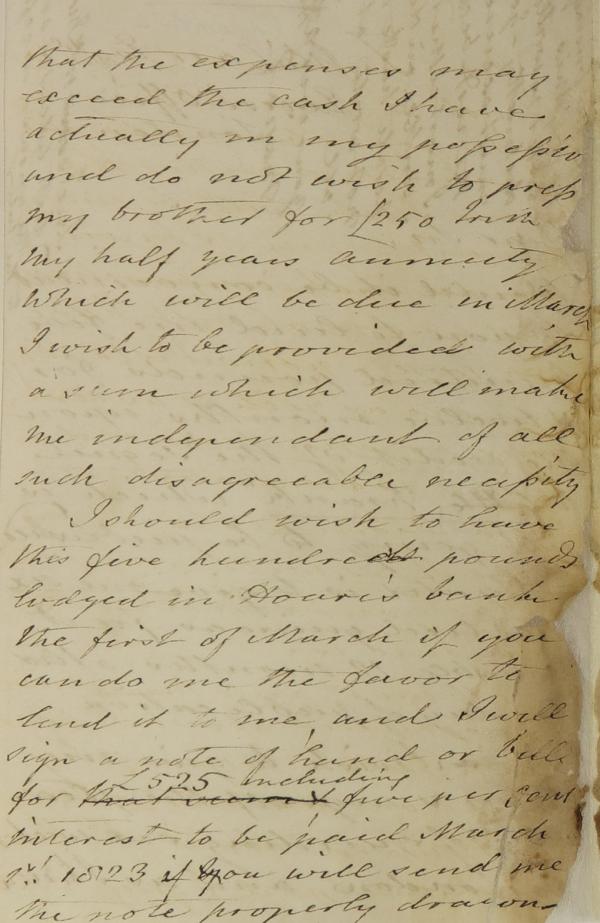 that the expenses may
exceed the cash I have
actually in my possessio
and do not wish to press
my brother for £250 Irish
my half years annuity
which will be due in March
I wish to be provided with
a sum which will make
me independant of all
such disagreeable necessity
I should wish to have
this five hundreds pounds
lodged in Hoare's bank
the first of March if you
can do me the favor to
lend it to me, and I will
sign a note of hand or bill
£525 including
for that sum & five per Cent
interest to be paid March
1st 1823 if you will send me
the note properly drawn-